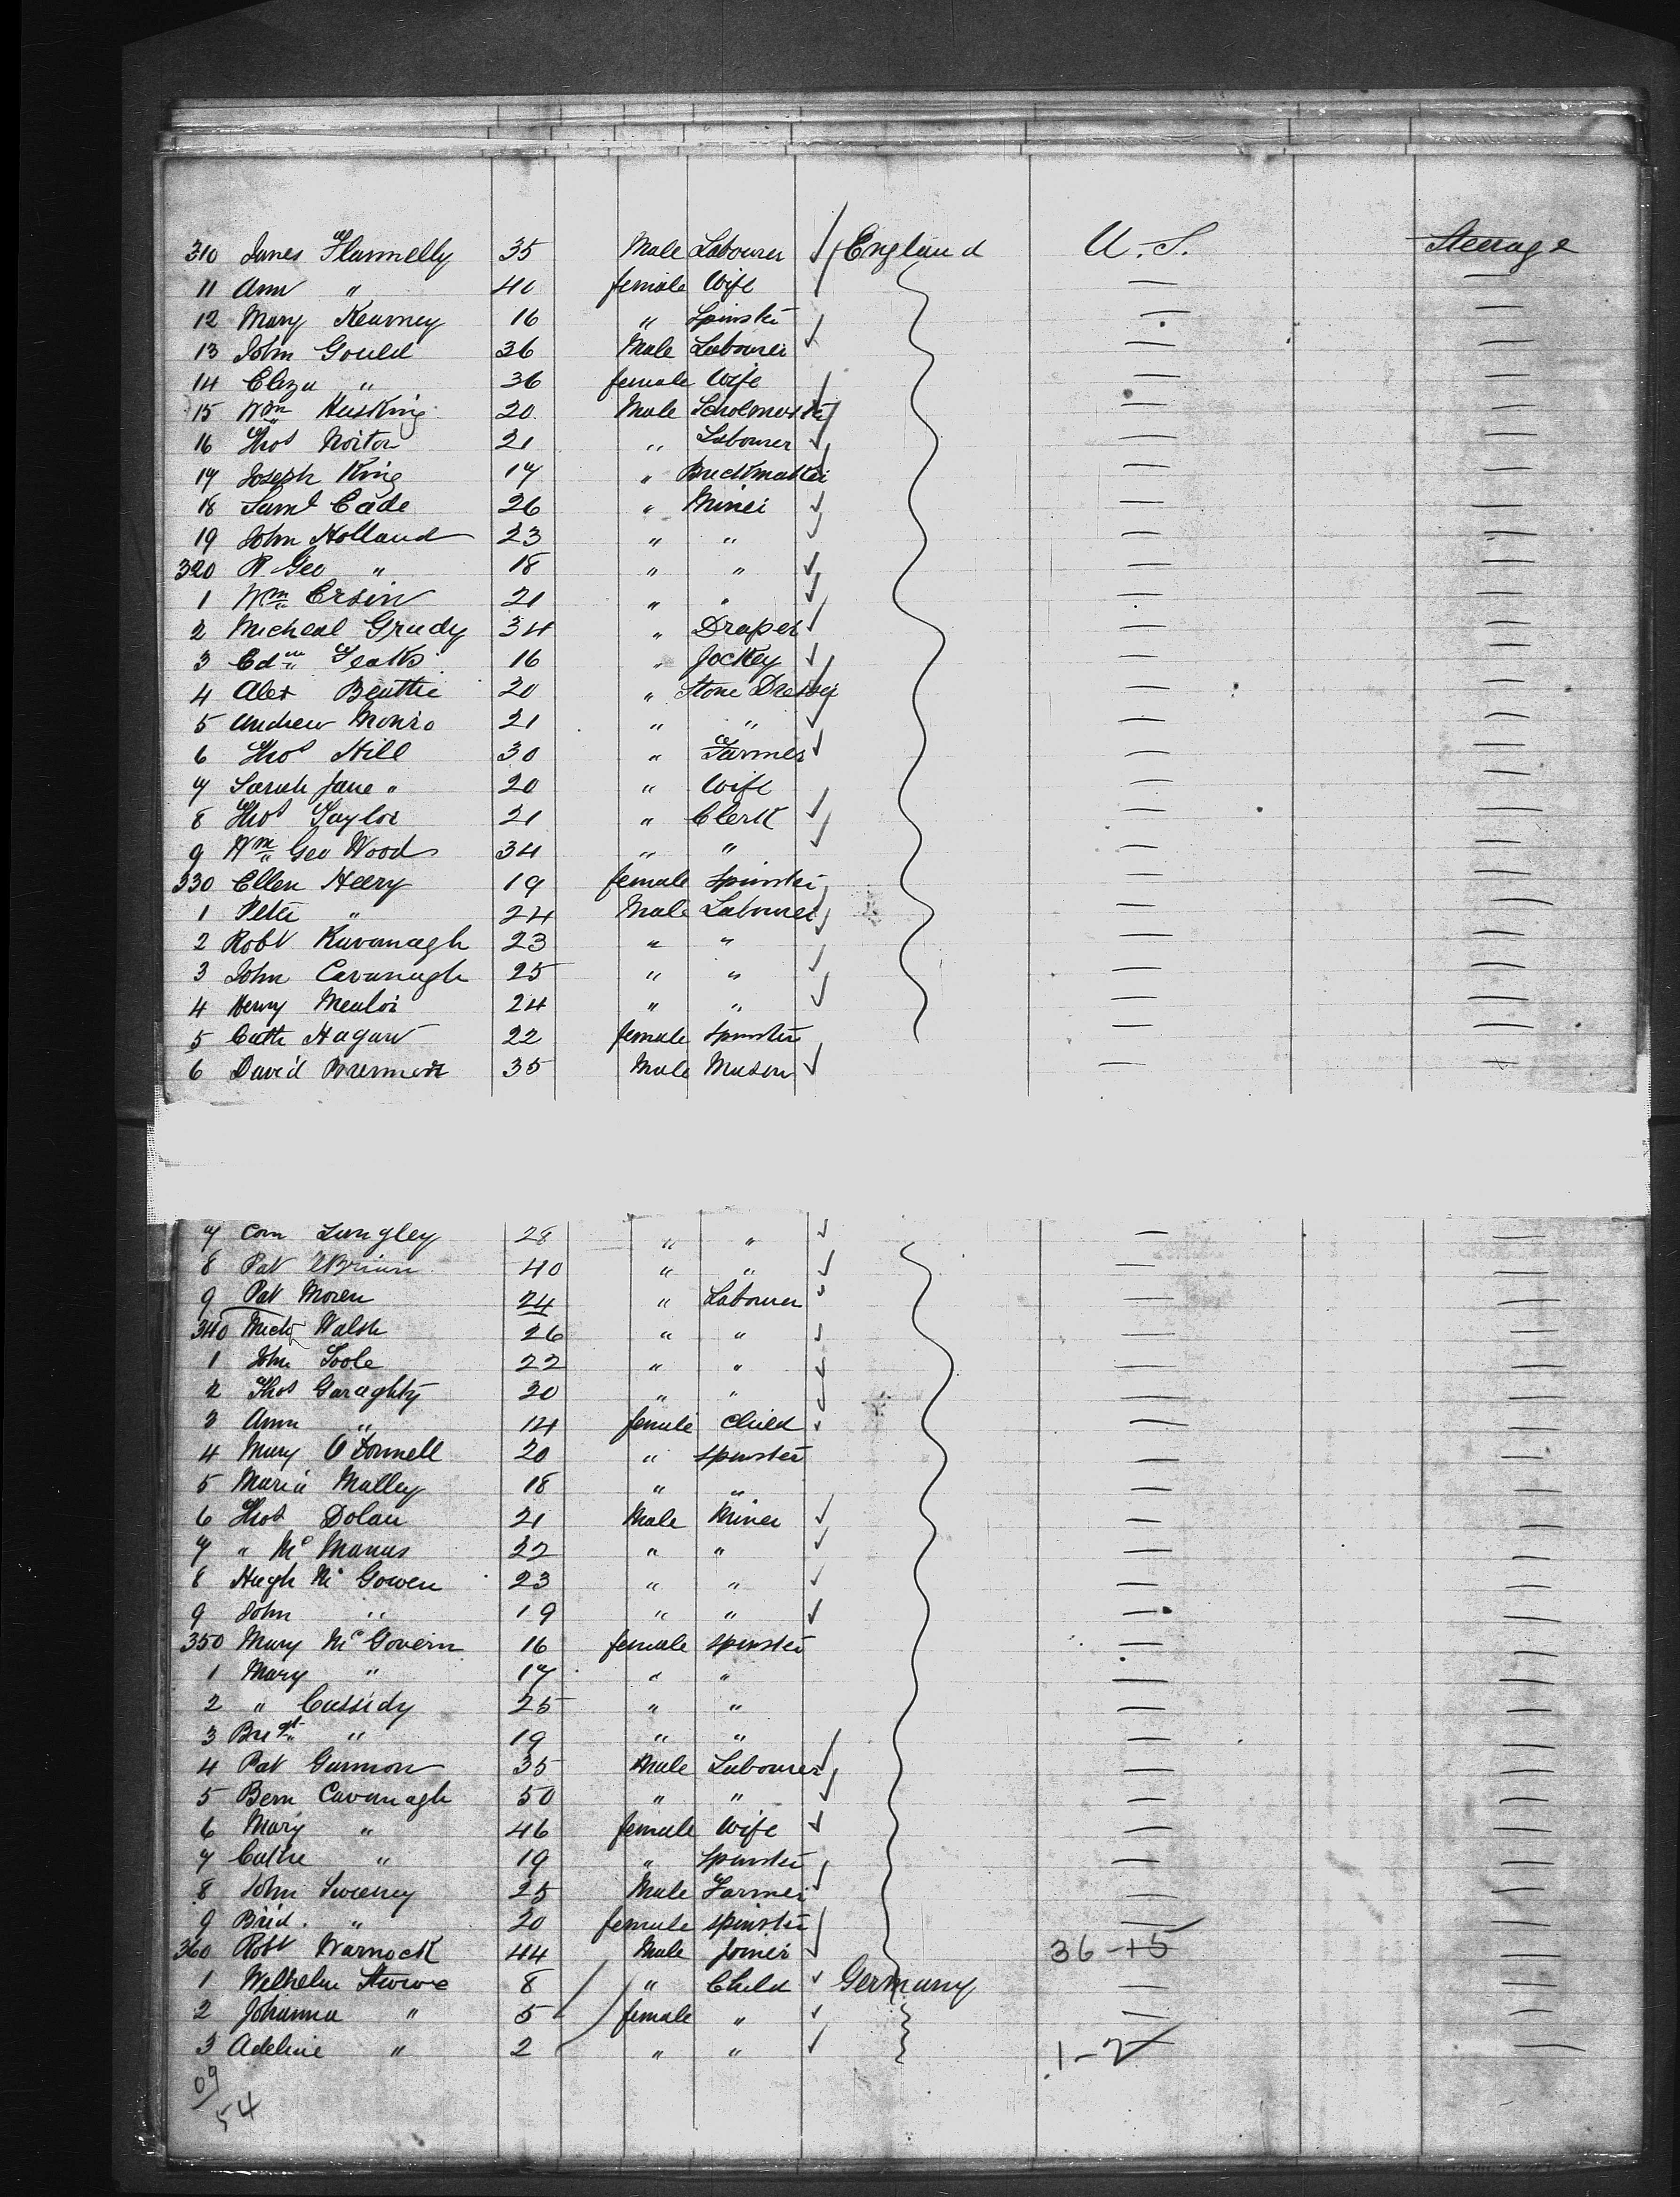 310 James Flannelly 35 Male Labourer England U.S. Steerage
11 Ann " 40 female Wife
12 Mary Kearney 16 " Spinster
13 John Gould 36 Male Labourer
14 Eliza " 36 female Wife
15 Wm Husking 20 Male Scholmaster
16 Thos Norton 21 " Labourer
17 Joseph King 17 " Brickmaker
18 Saml Cade 26 " Miner
19 John Holland 23 " "
320 R Geo " 18 " "
1 Wm Ersin 21 " "
2 Micheal Grady 34 " Draper
3 Edm Feaks 16 " Jockey
4 Alex Beattie 20 " Stone Dresser
5 Andrew Monro 21 " "
6 Thos Hill 30 " Farmer
7 Sarah Jane " 20 " Wife
8 Thos Taylor 21 " Clerk
9 Wm Geo Wood 34 " "
330 Ellen Heery 19 female Spinster
1 Peter " 24 Male Labourer
2 Robt Kavanagh 23 " "
3 John Cavanagh 25 " "
4 Henry 24 " "
5 Cath Hagan 22 female Spinster
6 David 35 Male Mason
7 Com Langley 28 " "
8 Pat OBrian 40 " "
9 Pat Moren 24 " Labourer
340 Mich Walsh 26 " "
1 John Toole 22 " "
2 Thos Garaghty 20 " "
3 Ann " 14 female Child
4 Mary O'Donnell 20 " Spinster
5 Maria Malley 18 " "
6 Thos Dolan 21 Male Miner
7 " Mc Manus 22 " "
8 Hugh Mc Gowen 23 " "
9 John " 19 " "
350 Mary Mc Govern 16 female Spinster
1 Mary " 17 " "
2 " Cassidy 25 " "
3 Bridgt " 19 " "
4 Pat Gannon 35 Male Labourer
5 Bern Cavanagh 50 " "
6 Mary " 46 female Wife
7 Cathe " 19 " Spinster
8 John Sweeney 25 Male Farmer
9 Brid. " 20 female Spinster
360 Robt Warnock 44 Male Joiner 36-+5
1 Wilhelm Stuwe 8 " Child Germany
2 Johanna " 5 female "
3 Adeline " 2 " " 1-2
09
54